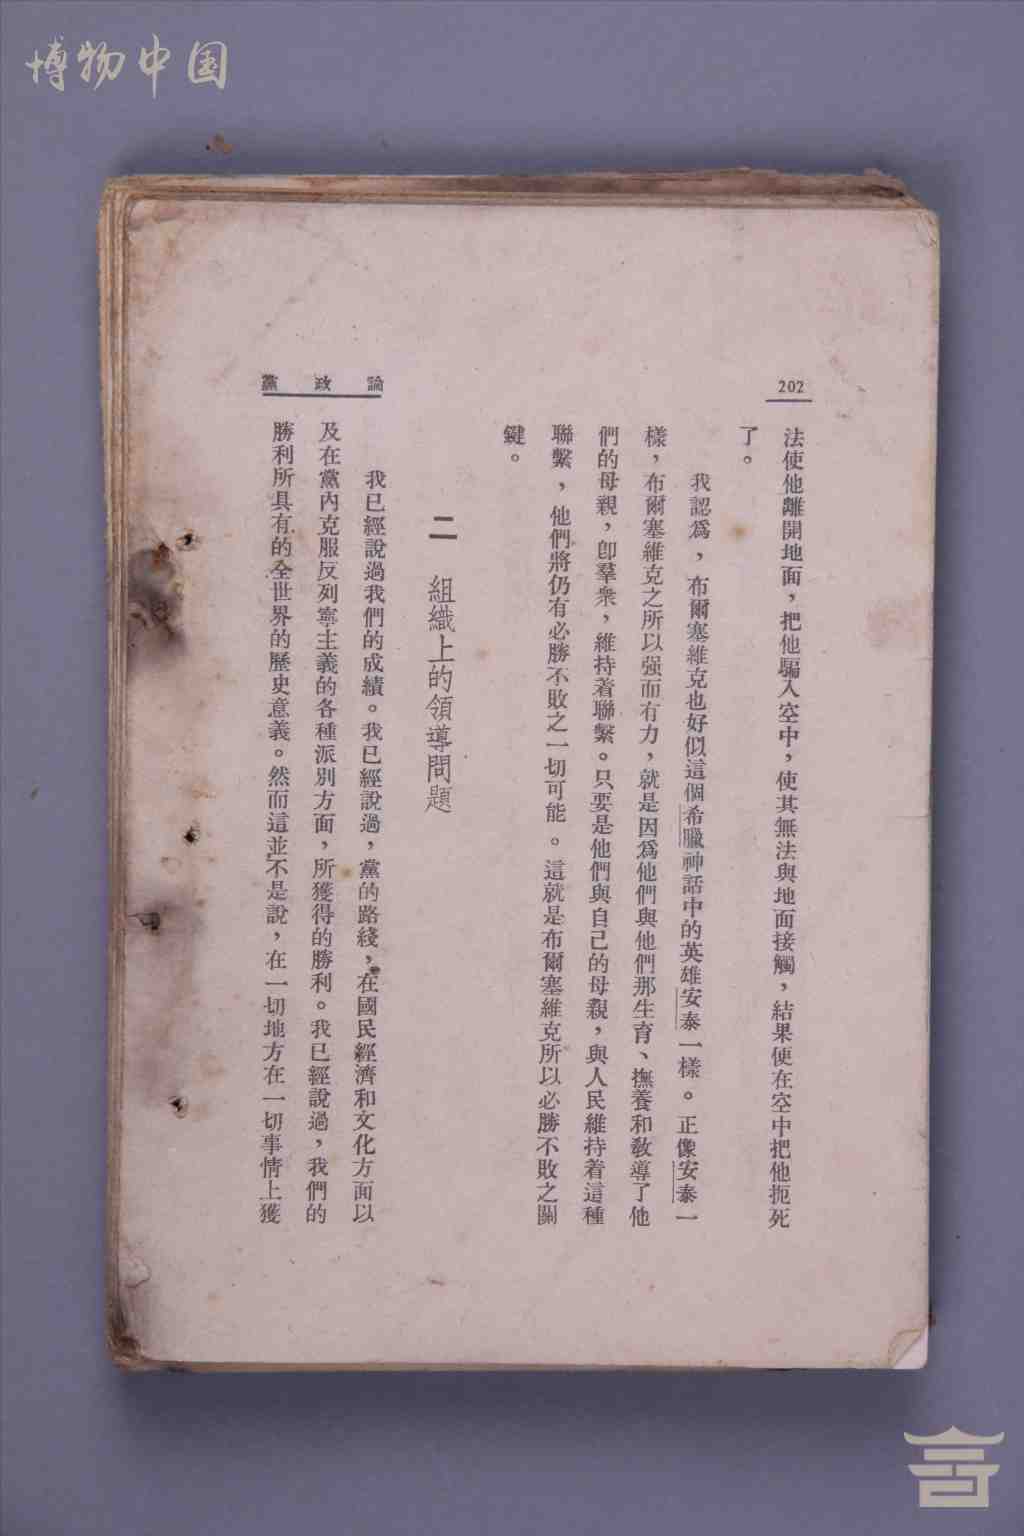 博物中国
202
論政黨
法使他離開地面，把他騙入空中，使其無法與地面接觸，結果便在空中把他扼死
了。
我認爲，布爾塞維克也好似這個希臘神話中的英雄安泰一樣。正像安泰一
樣，布爾塞維克之所以强而有力，就是因爲他們與他們那生育、撫養和敎導了他
們的母親，卽羣衆，維持着聯繫。只要是他們與自己的母親，與人民維持着這種
聯繫，他們將仍有必勝不敗之一切可能。這就是布爾塞維克所以必勝不敗之關
鍵。
二 組織上的領導問題
我已經說過我們的成績。我已經說過，黨的路綫，在國民經濟和文化方面以
及在黨內克服反列寧主義的各種派別方面，所獲得的勝利。我已經說過，我們的
勝利所具有的全世界的歷史意義。然而這並不是說，在一切地方在一切事情上獲